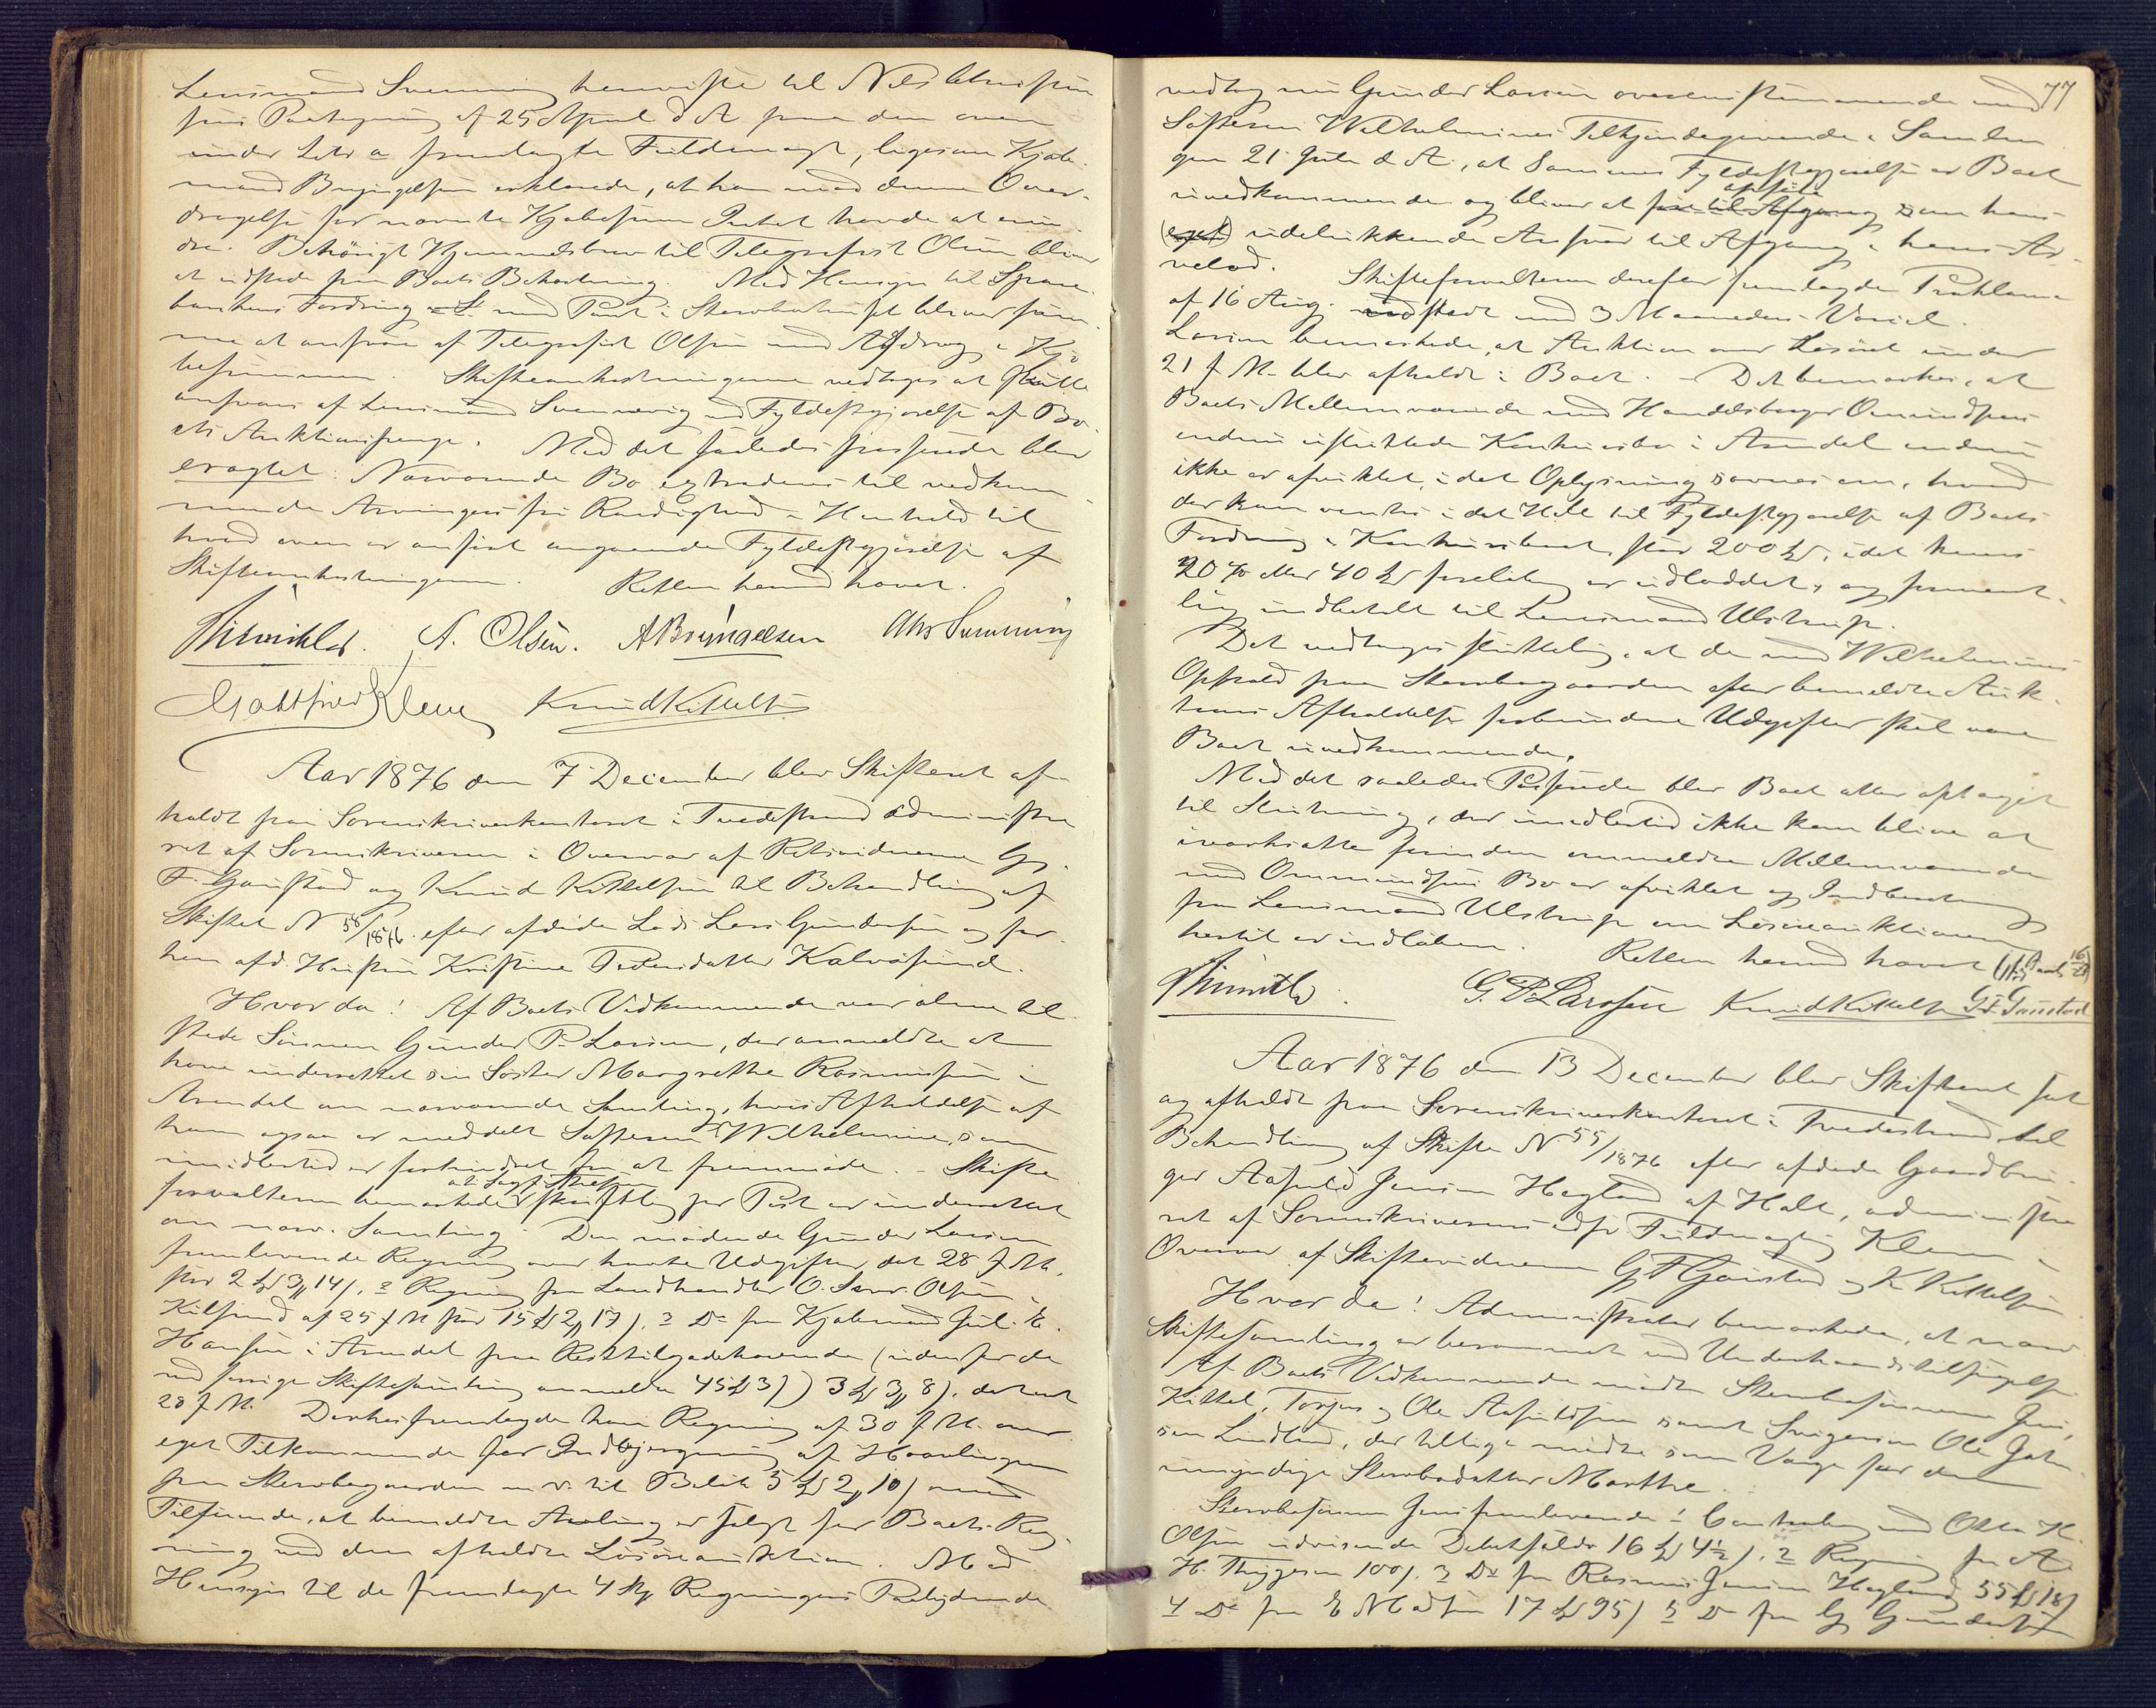 Lensmand Svenning henviste til Nils Ulrichsen
sens Paategning af 25 April d. A. paa den oven
under Litr a fremlagte Fuldmagt, ligesom Kjøb-
mand Bryngelsen erklærede, at han mod denne Over-
dragelse for nævnte Kjøbesum Intet havde at erin-
dre. Behørigt Hjemmelsbrev til Telegrafist Olsen bliver
at udstede fra Boets Behandling. Med Hensyn til Spare-
bankens Fordring med Pant i Stervbohuset bliver sam-
me at ansvare af Telegrafist Olsen med Afdrag i Kjø-
besummen. Skifteomkostningerne vedtoges at skulle
ansvares af Lensmand Svenning ved Fyldestgjørelse af Bo-
ets Auktionspenge. Med det saaledes passerede blev
eragtet: Nærværende Bo extraderes til vedkom-
mende Arvingers fri Raadighed i Henhold til
hvad oven er anført angaaende Fyldestgjørelse af
Skifteomkostningerne. Retten hermed hævet.
A. Olsen. A Bryngelsen Chr Svenning
Gottfried Klem Knud Kittelsen
Aar 1876 den 7 December blev Skifteret af-
holdt paa Sorenskriverkontoret i Tvedestrand administre-
ret af Sorenskriveren i Overvær af Retsvidnerne G.
F. Gaustad og Knud Kittelsen til Behandling af
Skiftet N 58/1876 efter afdøde Lods Lars Gundersen og før-
hen afd. Hustru Kristine Pedersdatter Kalvøsund.
Hvor da! Af Boets Vedkommende var alene til
stede Sønnen Gunder P. Larsen, der anmeldte at
have underrettet sin Søster Margrethe Rasmussen i
Arendal om nærværende Samling, hvis Afholdelse af
ham ogsaa er meddelt Søsteren Wilhelmine, som
imidlertid er forhindret fra at fremmøde. Skifte
forvalteren bemærkede skriftlig per Post er underrettet
om nærv. Samling. Den mødende Gunder Larsen
fremlevende Regning over havte Udgifter dat 28 f. M.
stor 2 Spd 3 # 14 s. 2 Regning fra Landhandler O. Olsen
Kilsund af 25 f M stor 15 Spd 2 # 17 s. 3 Do fra Kjøbmand Jul. E.
Hansen i Arendal paa Resttilgodehavende (uden for de
ved forrige Skiftesamling anmeldte 45 Spd 3 #) 3 Spd 3 # 8 s. dateret
28 f. M. Derhos fremlagde han Regning af 30 f. M. over
eget Tilkommende for Indbjergning af Høavlingen
paa Stervbogaarden m. v. til Beløb 5 Spd 2 # 10 s med
Tilføiende, at bemeldte Avling er solgt for Boets Reg-
ning ved den afholdte Løsøreauktion. Med
Hensyn til de fremlagte 4 Stk Regningers Paalydende
77
vedtog nu Gunder Larsen overensstemmende med
Søsteren Wilhelmines Tilkjendegivende i Samlin-
gen 21 Juli d. A., at Sammes Fyldestgjørelse er Boet
uvedkommende og bliver at opføre som hans
udelukkende Ansvar til Afgang i hans Ar-
velod. Skifteforvalteren derefter fremlagde Proklama
af 16 Aug. udstedt med 3 Maaneders Varsel.
Larsen bemærkede, at Auktion over Løsøret under
21 f. M. blev afholdt i Boet. – Det bemærkes, at
Boets Mellemværende med Handelsborger Omundsens
under indsluttede Konkursbo i Arendal endnu
ikke er afviklet, i det Oplysning savnes om, hvad
der kan ventes i det Hele til Fyldestgjørelse af Boets
Fordring i Konkursboet, stor 200 Spd, idet heraf
20 % eller 40 Spd foreløbig er udloddet, og forment-
lig indbetalt til Lensmand Ulstrup.
Det vedtoges sluttelig, at de med Wilhelmines
Ophold paa Stervbogaarden efter bemeldte Auk-
tions Afholdelse forbundne Udgifter skal være
Boet uvedkommende.
Med det saaledes Passerede blev Boet atter optaget
til Slutning, der imidlertid ikke kan blive at
iværksætte førinden ommeldte Mellemværende
med Ommundsens Bo er afviklet og Indberetning
fra Lensmand Ulstrup om Løsøreauktionen
hertil er indløben. Retten hermed hævet
G. P. Larssen Knud Kittelsen G. F. Gaustad
Aar 1876 den 13 December blev Skifteret sat
og afholdt paa Sorenskriverkontoret i Tvedestrand til
Behandling af Skifte N 55/1876 efter afdøde Gaardbru-
ger Aasuld Jensen Hagland af Holt, administre-
ret af Sorenskriverens edsv. Fuldmægtig Klem i
Overvær af Skiftevidnerne G F Gaustad og K Kittelsen
Hvor da! Administrator bemærkede, at nærv.
Skiftesamling er berammet ved Underhaandstilsigelse
Af Boets Vedkommende mødte Stervbosønnerne Jens,
Kittel, Torjus og Ole Aasuldsen samt Svigersøn Ole Joh-
sen Lindland, der tillige mødte som Værge for den
umyndige Stervbodatter Marthe.
Stervbosønnen Jens fremlevende: 1 Contrabog med Otto H.
Olsen udvisende Debetsaldo 16 Spd 4 1/2 s. 2 Regning fra A.
H. Thygesen 100 s. 3 Do fra Rasmus Jensen Hagland 55 Spd 18 s
4 Do fra E Madsen 17 Spd 95 s 5 Do fra G Gundersen